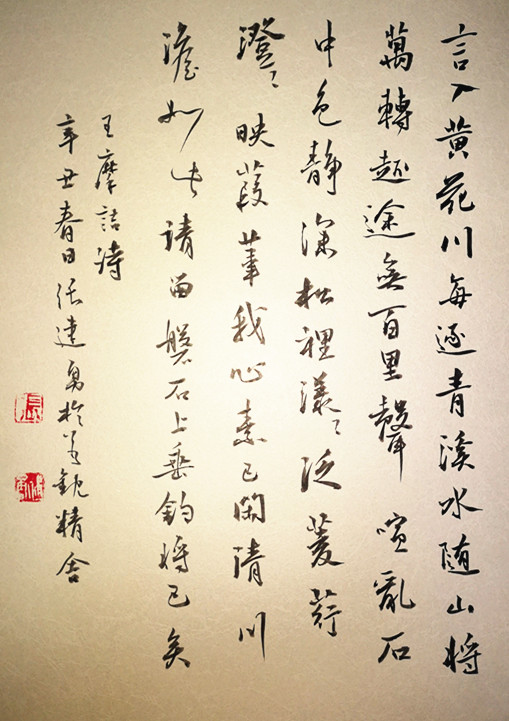 言入黃花川每逐青溪水随山將
萬轉趍途無百里聲喧亂石
中色靜深松裡漾〻泛菱荇
澄〻映葭葦我心素已閑清川
澹如此請留磐石上垂釣將已矣
王摩詰詩
辛丑春日張達勇於觀精舍